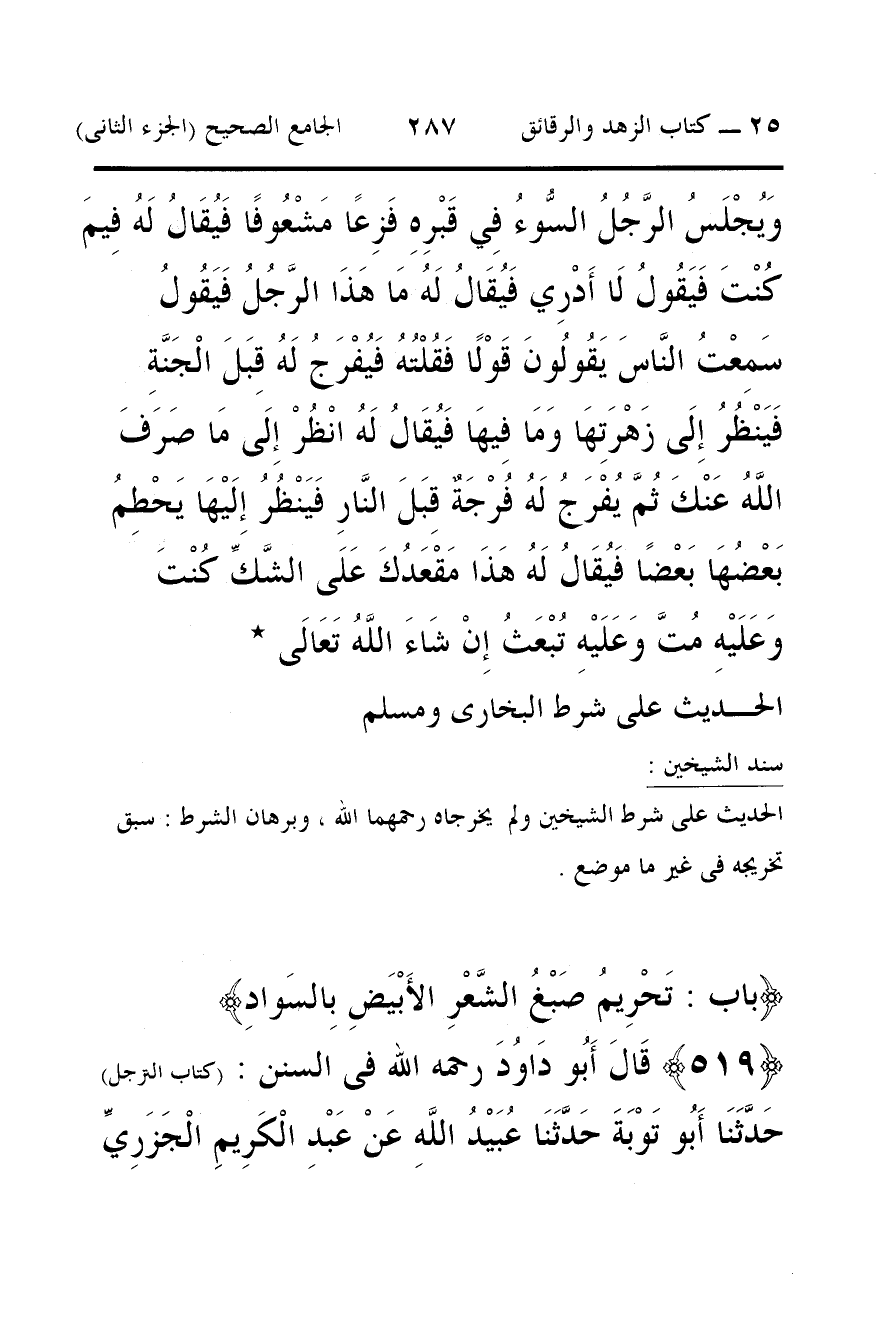 ٢٥ ــ كتاب الزهد والرقائق ٢٨٧ الجامع الصحيح (الجزء الثانى)
وَيُجْلَسُ الرَّجُلُ السُّوءُ فِي قَبْرِهِ فَزِعًا مَشْعُوفًا فَيُقَالُ لَهُ فِيمَ
كُنْتَ فَيَقُولُ لَا أَدْرِي فَيُقَالُ لَهُ مَا هَذَا الرَّجُلُ فَيَقُولُ
سَمِعْتُ النَّاسَ يَقُولُونَ قَوْلًا فَقُلْتُهُ فَيُفْرَجُ لَهُ قِبَلَ الْجَنَّةِ
فَيَنْظُرُ إِلَى زَهْرَتِهَا وَمَا فِيهَا فَيُقَالُ لَهُ انْظُرْ إِلَى مَا صَرَفَ
اللَّهُ عَنْكَ ثُمَّ يُفْرَجُ لَهُ فُرْجَةٌ قِبَلَ النَّارِ فَيَنْظُرُ إِلَيْهَا يَحْطِمُ
بَعْضُهَا بَعْضًا فَيُقَالُ لَهُ هَذَا مَقْعَدُكَ عَلَى الشَّكِّ كُنْتَ
وَعَلَيْهِ مُتَّ وَعَلَيْهِ تُبْعَثُ إِنْ شَاءَ اللَّهُ تَعَالَى *
الحـــديث على شرط البخارى ومسلم
سند الشيخين :
الحديث على شرط الشيخين ولم يخرجاه رحمهما الله ، وبرهان الشرط : سبق
تخريجه فى غير ما موضع .
﴿باب : تَحْرِيمُ صَبْغُ الشَّعْرِ الأَبْيَضِ بِالسَوادِ﴾
﴿٥١٩﴾ قَالَ أَبُو دَاوُدَ رحمه الله فى السنن : (كتاب الترجل)
حَدَّثَنَا أَبُو تَوْبَةَ حَدَّثَنَا عُبَيْدُ اللَّهِ عَنْ عَبْدِ الْكَرِيمِ الْجَزَرِيِّ